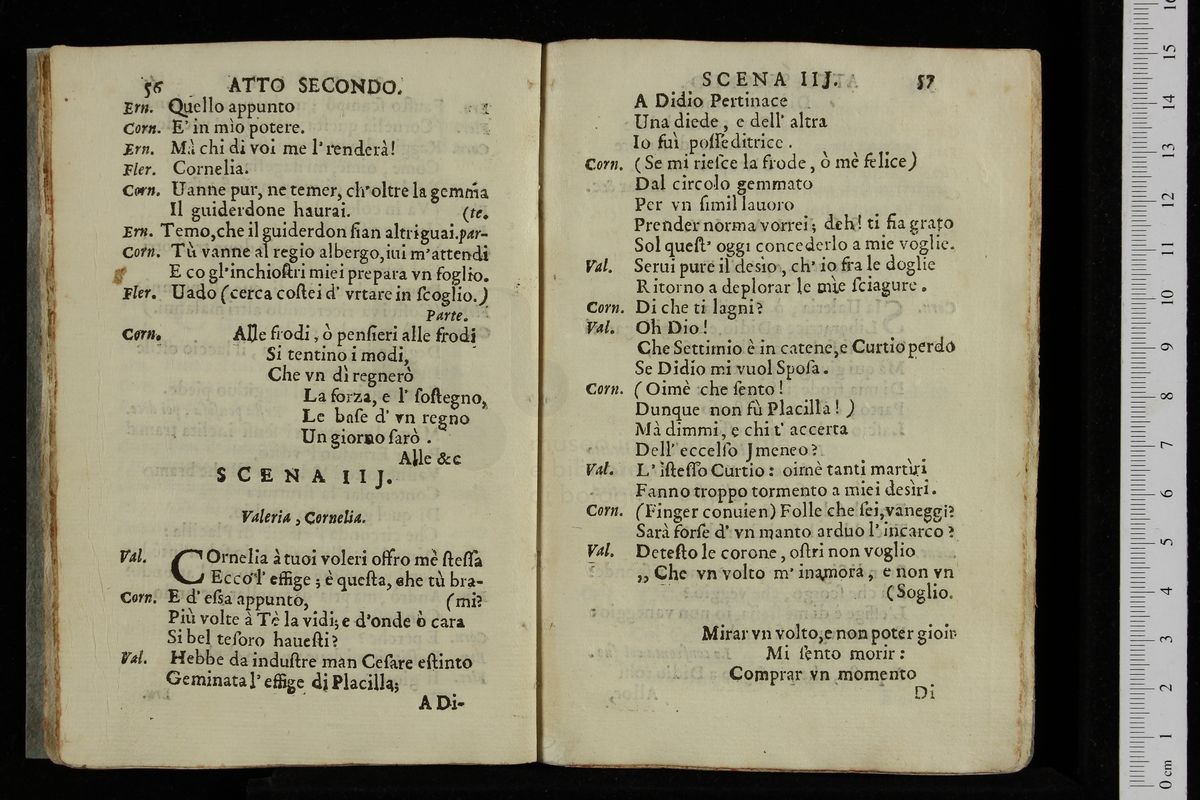 56 ATTO SECONDO.
Ern. Quello appunto
Corn. E' in mio potere.
Ern. Mà chi di voi me l'renderà!
Fler. Cornelia.
Corn. Uanne pur, ne temer, ch'oltre la gemma
Il guiderdone haurai. (te.
Ern. Temo,che il guiderdon sian altri guai.par-
Corn. Tù vanne al regio albergo,iui m'attendi
E co gl'inchiostri miei prepara vn foglio.
Fler. Uado (cerca costei d' vrtare in scoglio.)
Parte.
Corn. Alle frodi, ò pensieri alle frodi
Si tentino i modi,
Che vn dì regnerò
La forza, e l' sostegno,
Le base d' vn regno
Un giorno sarò .
Alle &c
SCENA IIJ.
Valeria , Cornelia.
Val. COrnelia à tuoi voleri offro mè stessa
Ecco l' effige ; è questa, che tù bra-
Corn. E d' essa appunto, (mi?
Più volte à Tè la vidi; e d'onde ò cara
Si bel tesoro hauesti?
Val. Hebbe da industre man Cesare estinto
Geminata l' effige di Placilla;
A Di-
SCENA IIJ. 57
A Didio Pertinace
Una diede, e dell' altra
Io fuì posseditrice .
Corn. (Se mi riesce la frode, ò mè felice)
Dal circolo gemmato
Per vn simil lauoro
Prender norma vorrei; deh! ti sia grato
Sol quest' oggi concederlo a mie voglie.
Val. Serui pure il desio, ch' io fra le doglie
Ritorno a deplorar le mie sciagure .
Corn. Di che ti lagni?
Val. Oh Dio!
Che Settimio è in catene,e Curtio perdo
Se Didio mi vuol Sposa.
Corn. (Oimè che sento!
Dunque non fù Placilla!)
Mà dimmi, e chi t' accerta
Dell' eccelso Jmeneo?
Val. L' istesso Curtio : oimè tanti martìri
Fanno troppo tormento a miei desìri.
Corn. (Finger conuien) Folle che sei,vaneggi?
Sarà forse d' vn manto arduo l' incarco?
Val. Detesto le corone, ostri non voglio
,, Che vn volto m' inamora, e non vn
(Soglio.
Mirar vn volto,e non poter gioir
Mi sento morir :
Comprar vn momento
Di
0 cm 1 2 3 4 5 6 7 8 9 10 11 12 13 14 15 16